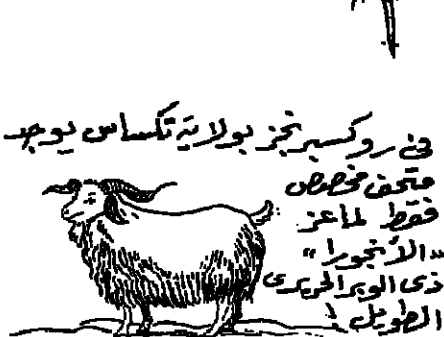 فى روكسبرنجز بولاية تكساس يوجد
متحف مخصص
فقط لماعز
"الأنجورا"
ذى الوبر الحريرى
الطويل !